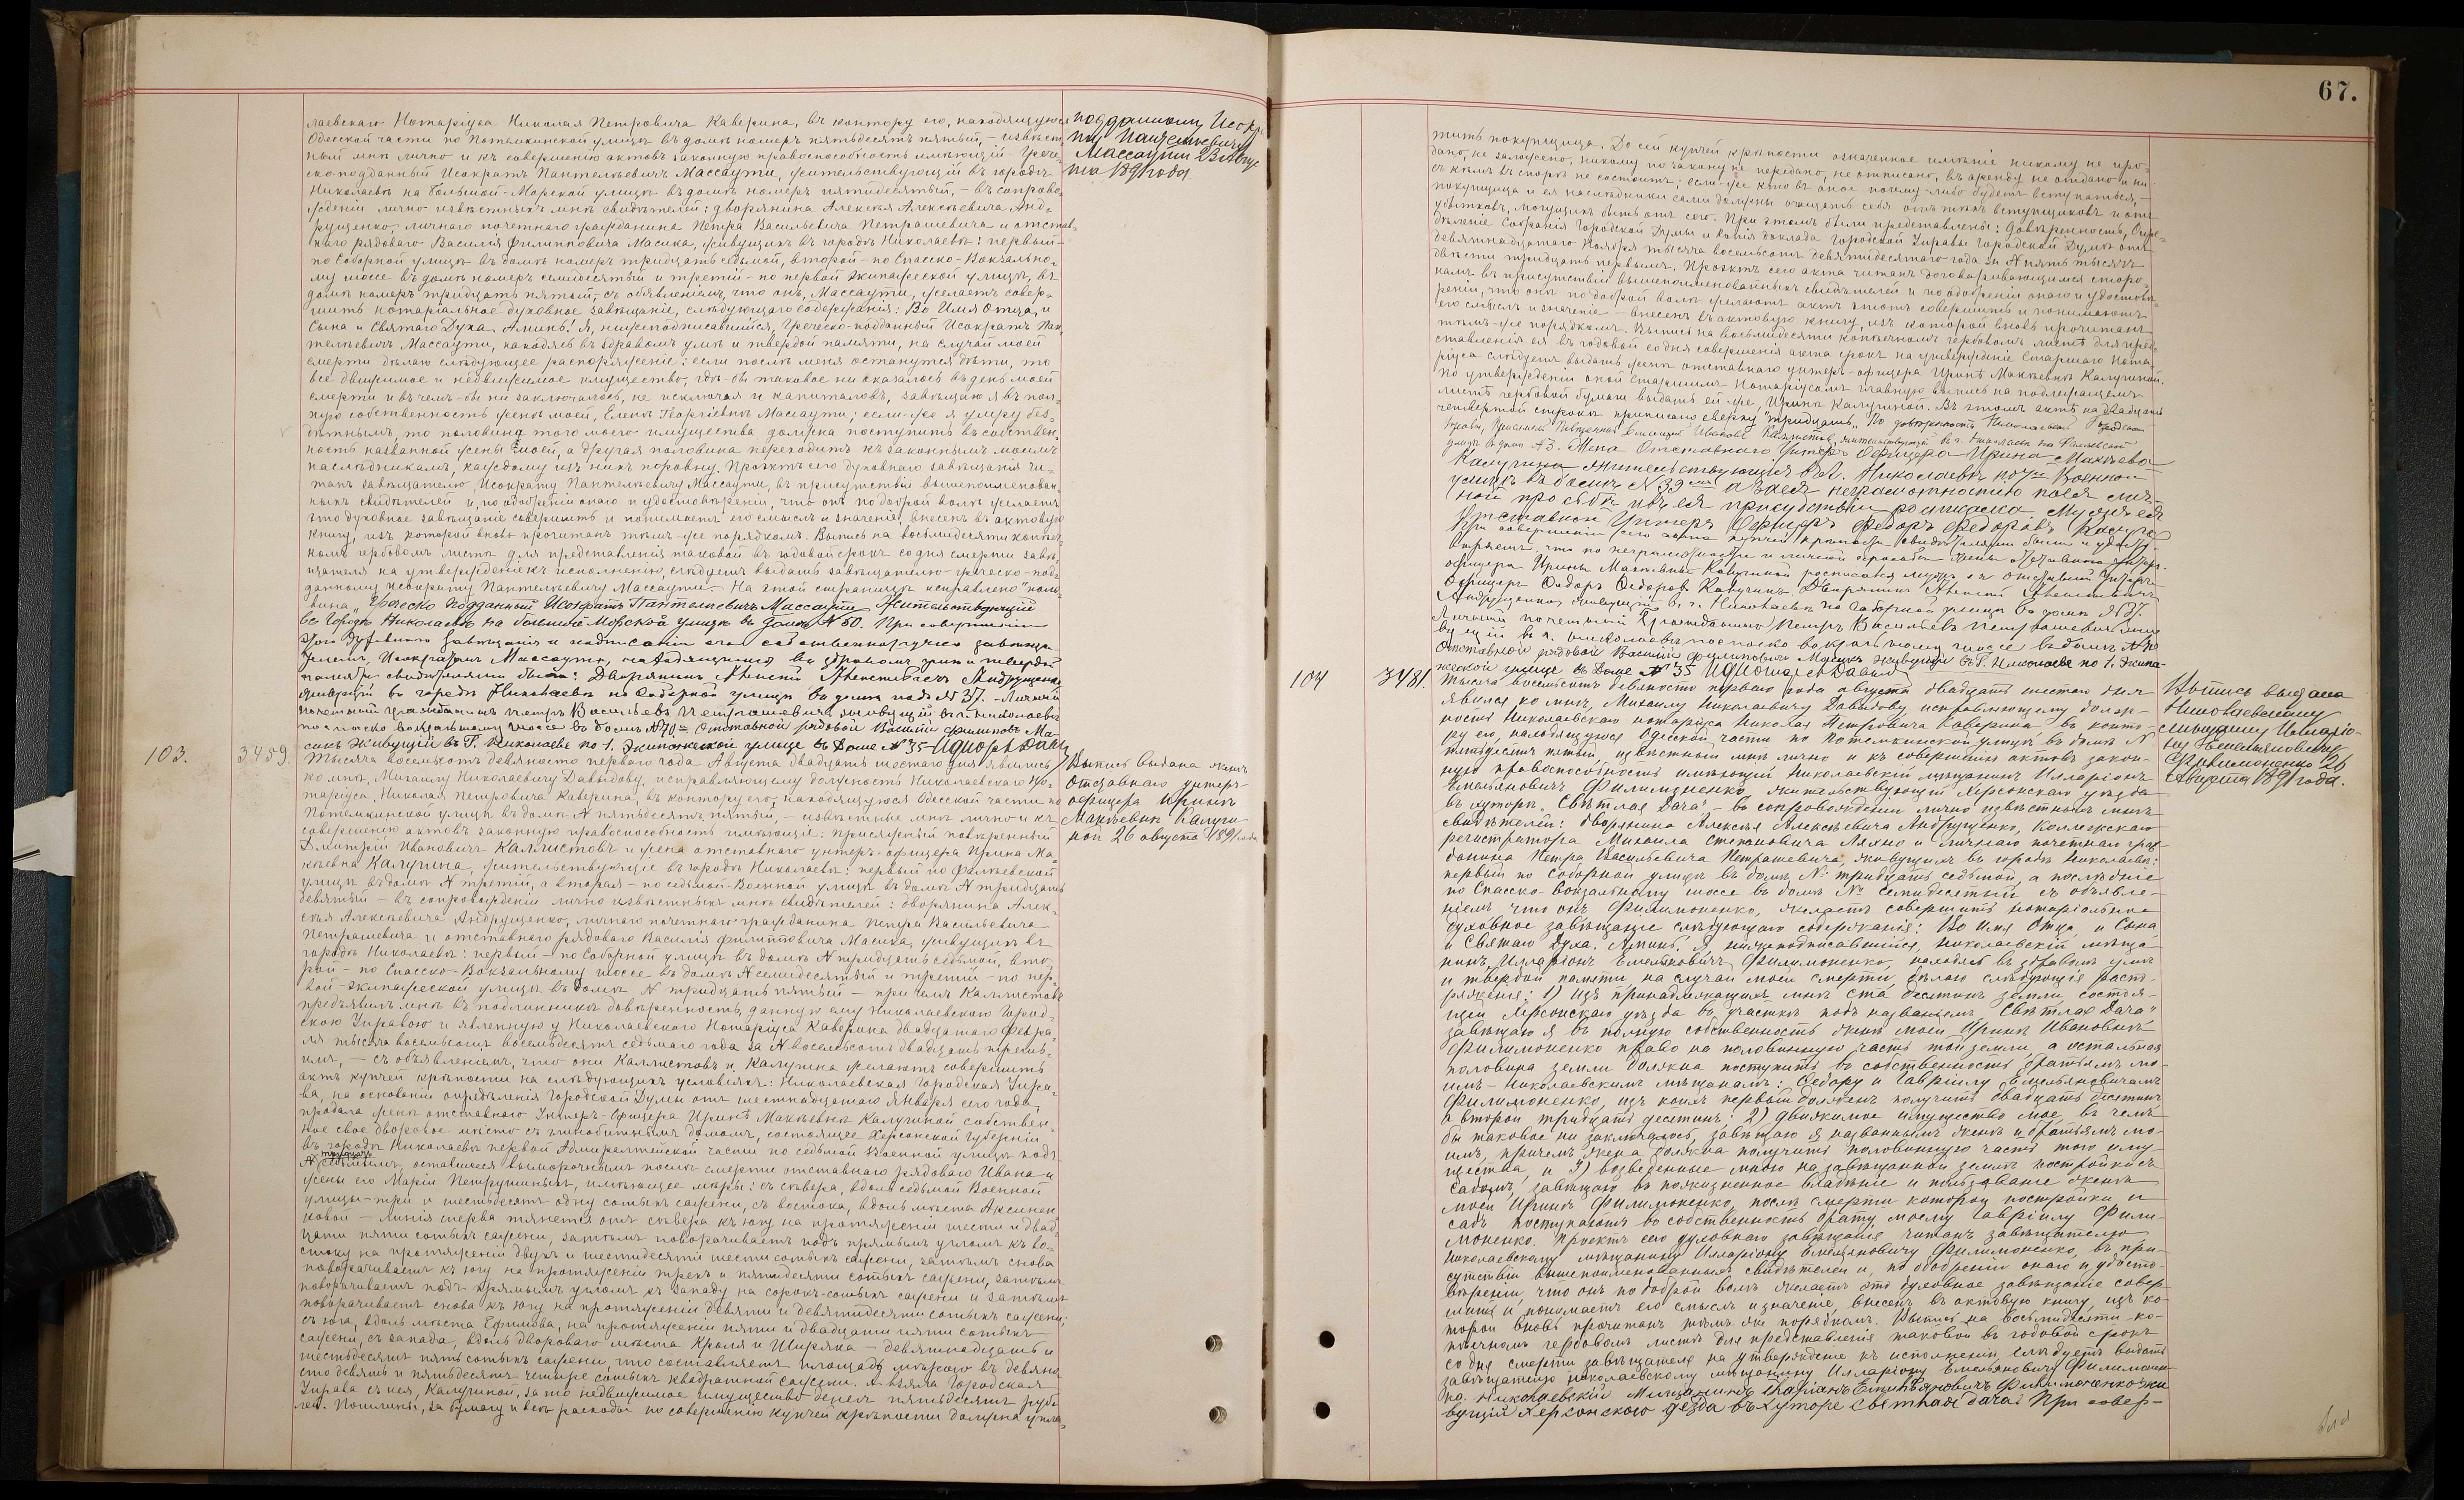 лаевскаго Нотаріуса Николая Петровича Каверина, въ контору его, находящуюся
Одесской части по Потемкинской улицѣ въ домѣ номеръ пятьдесятъ пятый, – извѣст-
ный мнѣ лично и къ совершенію актовъ законную правоспособность имѣющій – Грече-
скоподданный Исократъ Пантелѣевичъ Массаути, жительствующій въ городѣ
Николаевѣ на Большой-Морской улицѣ въ домѣ номеръ пятидесятый, – въ сопрово-
жденіи лично извѣстныхъ мнѣ свидѣтелей: дворянина Алексѣя Алексѣевича Анд-
рущенко, личнаго почетнаго гражданина Петра Васильевича Петрашевича и отстав-
наго рядоваго Василія Филипповича Масика, живущихъ въ городѣ Николаевѣ: первый –
по Соборной улицѣ въ домѣ номеръ тридцать седьмой, второй – по Спасско-Вокзально-
му шоссе въ домѣ номеръ семидесятый и третій – по первой Экипажеской улицѣ, въ
домѣ номеръ тридцать пятый, съ объявленіемъ, что онъ, Массаути, желаетъ совер-
шить нотаріальное духовное завѣщаніе, слѣдующаго содержанія: Во Имя Отца, и
Сына и Святаго Духа. Аминь! Я, нижеподписавшійся, Греческо-подданный Исократъ Пан-
телѣевичъ Массаути, находясь въ здравомъ умѣ и твердой памяти, на случай моей
смерти дѣлаю слѣдующее распоряженіе: если послѣ меня останутся дѣти, то
все движимое и недвижимое имущество, гдѣ-бы таковое ни оказалось въ день моей
смерти и въ чемъ-бы ни заключалось, не исключая и капиталовъ, завѣщаю я въ пол-
ную собственность женѣ моей, Еленѣ Георгіевнѣ Массаути; если-же я умру без-
дѣтнымъ, то половина того моего имущества должна поступить въ собствен-
ность названной жены моей, а другая половина переходитъ къ законнымъ моимъ
наслѣдникамъ, каждому изъ нихъ поровну. Проэктъ сего духовнаго завѣщанія чи-
танъ завѣщателю, Исократу Пантелѣевичу Массаути, въ присутствіи вышепоименован-
ныхъ свидѣтелей и, по одобреніи онаго и удостовѣреніи, что онъ по доброй волѣ желаетъ
это духовное завѣщаніе совершить и понимаетъ его смыслъ и значеніе, внесенъ въ актовую
книгу, изъ которой вновь прочитанъ тѣмъ-же порядкомъ. Выпись на восьмидесяти копѣеч-
номъ гербовомъ листѣ для представленія таковой въ годовой срокъ со дня смерти завѣ-
щателя на утвержденіе къ исполненію, слѣдуетъ выдать завѣщателю греческо-под-
данному Исократу Пантелѣевичу Массаути. На этой страницѣ исправлено "поло-
вина". Греческо подданный Исократъ Пантелѣевичъ Массаути Жительствующій
въ Городѣ Николаевѣ на большой Морской улицѣ въ домѣ N 50. При совершеніи
сего духовнаго завѣщанія и подписаніи его собственноручно завѣща-
телемъ, Исократомъ Массаути, находящимся въ здравомъ умѣ и твердой
памяти свидѣтелями были: Дворянинъ Алексѣй Алексѣевичъ Андрущенко
живущій въ городѣ Николаевѣ по Соборной улицѣ въ домѣ подъ N 37. – Личный
почетный гражданинъ Петръ Васильевъ Петрашевичъ живущій въ г. Николаевѣ
по спаско вокзальному шоссе въ домѣ N 70. – Отставной рядовой Василій Филиповъ Ма-
сикъ живущій въ Г. Николаеве по 1. Экипажеской улице въ Доме N 35
103.
3459.
Тысяча восемьсотъ девяносто перваго года Августа двадцать шестаго дня явились
ко мнѣ, Михаилу Николаевичу Давыдову, исправляющему должность Николаевскаго Но-
таріуса, Николая Петровича Каверина, въ контору его, находящуюся Одесской части по
Потемкинской улицѣ въ домѣ N пятьдесятъ пятый, – извѣстные мнѣ лично и къ
совершенію актовъ законную правоспособность имѣющіе: присяжный повѣренный
Дмитрій Ивановичъ Каллистовъ и жена отставнаго унтеръ-офицера Ирина Ма-
кѣевна Калугина, жительствующіе въ городѣ Николаевѣ: первый по Фалѣевской
улицѣ въ домѣ N третій, а вторая – по седьмой-Военной улицѣ въ домѣ N тридцать
девятый – въ сопровожденіи лично извѣстныхъ мнѣ свидѣтелей: дворянина Алек-
сѣя Алексѣевича Андрущенко, личнаго почетнаго гражданина Петра Васильевича
Петрашевича и отставнаго рядоваго Василія Филипповича Масика, живущихъ въ
городѣ Николаевѣ: первый – по Соборной улицѣ въ домѣ N тридцать седьмой, вто-
рой – по Спасско-Вокзальному шоссе въ домѣ N семидесятый и третій – по пер-
вой-Экипажеской улицѣ въ домѣ N тридцать пятый – при чемъ Каллистовъ
предъявилъ мнѣ въ подлинникѣ довѣренность, данную ему Николаевскою Город-
скою Управою и явленную у Николаевскаго Нотаріуса Каверина двадцатаго Февра-
ля тысяча восемьсотъ восемьдесятъ седьмаго года за N восемьсотъ двадцать треть-
имъ, – съ объявленіемъ, что они Каллистовъ и Калугина желаютъ совершить
актъ купчей крѣпости на слѣдующихъ условіяхъ: Николаевская Городская Упра-
ва, на основаніи опредѣленія Городской Думы отъ шестнадцатаго Января сего года,
продала женѣ отставнаго Унтеръ-Офицера Иринѣ Макѣевнѣ Калугиной собствен-
ное свое дворовое мѣсто съ глинобитнымъ домомъ, состоящее Херсонской Губерніи
въ городѣ Николаевѣ первой Адмиралтейской части по седьмой Военной улицѣ подъ
тридцать
N седьмымъ, оставшееся выморочнымъ послѣ смерти отставнаго рядоваго Ивана и
жены его Маріи Петрушиныхъ, имѣющее мѣры: съ сѣвера, вдоль седьмой Военной
улицы – три и шестьдесятъ одну сотыхъ сажени, съ востока, вдоль мѣста Аксинен-
ковой – линія сперва тянется отъ сѣвера къ югу на протяженіи шести и двад-
цати пяти сотыхъ сажени, затѣмъ поворачиваетъ подъ прямымъ угломъ къ во-
стоку на протяженіи двухъ и шестидесяти шести сотыхъ сажени, затѣмъ снова
поворачиваетъ къ югу на протяженіи трехъ и пятидесяти сотыхъ сажени, затѣмъ
поворачиваетъ подъ прямымъ угломъ къ западу на сорокъ-сотыхъ сажени и затѣмъ
поворачиваетъ снова къ югу на протяженіи девяти и девятидесяти сотыхъ сажени;
съ юга, вдоль мѣста Ефимова, на протяженіи пяти и двадцати пяти сотыхъ
сажени, съ запада, вдоль двороваго мѣста Кроля и Ширяка – девятнадцать и
шестьдесятъ пять сотыхъ сажени, что составляетъ площадь мѣрою въ девяно-
сто девять и пятьдесятъ четыре сотыхъ квадратной сажени. А взяла Городская
Управа съ нея, Калугиной, за то недвижимое имущество денегъ пятьдесятъ руб-
лей. Пошлины, за бумагу и всѣ расходы по совершенію купчей крѣпости должна упла-
подданному Исокра-
ту Пантелѣевичу
Массаути 23 Авгус-
та 1891 года
Выпись выдана женѣ
отставнаго унтеръ-
офицера Иринѣ
Макѣевнѣ Калуги-
ной 26 августа 1891 года
67.
тить покупщица. До сей купчей крѣпости означенное имѣніе никому не про-
дано, не заложено, никому по закону не передано, не отписано, въ аренду не отдано и ни
съ кѣмъ въ спорѣ не состоитъ; если-же кто въ оное почему-либо будетъ вступаться, –
покупщица и ея наслѣдники сами должны очищать себя отъ тѣхъ вступщиковъ и отъ
убытковъ, могущихъ быть отъ сего. При этомъ были представлены: довѣренность, Опре-
дѣленіе Собранія Городской Думы и Копія доклада Городской Управы Городской Думѣ отъ
девятнадцатаго Ноября тысяча восемьсотъ девятидесятаго года за N пять тысячъ
двѣсти тридцать первымъ. Проэктъ сего акта читанъ договаривающимся сторо-
намъ въ присутствіи вышепоименованныхъ свидѣтелей и по одобреніи онаго и удостовѣ-
реніи, что они по доброй волѣ желаютъ актъ этотъ совершить и понимаютъ
его смыслъ и значеніе – внесенъ въ актовую книгу, изъ которой вновь прочитанъ
тѣмъ-же порядкомъ. Выпись на восьмидесяти копѣечномъ гербовомъ листѣ для пред-
ставленія ея въ годовой со дня совершенія акта срокъ на утвержденіе Старшаго Нота-
ріуса слѣдуетъ выдать женѣ отставнаго унтеръ-офицера Иринѣ Макѣевнѣ Калугиной.
По утвержденіи оной Старшимъ Нотаріусомъ главную выпись на подлежащемъ
листѣ гербовой бумаги выдать ей-же, Иринѣ Калугиной. Въ этомъ актѣ на двадцать
четвертой строкѣ приписано сверху "тридцать". По довѣренности Николаевской Городской
Управы, Присяжный Повѣренный Дмитрій Ивановъ Каллистовъ, жительствующій въ г. Николаевѣ на Фалѣевской
улицѣ въ домѣ N 3. Жена Отставнаго Унтеръ Офицера Ирина Макѣева
Калугина Жительствующая въ г. Николаевѣ по 7й Военной
улицѣ въ домѣ N 39 а за нея неграмотностію по ея лич-
ной просьбѣ и въ ея присудствіи росписался Мужъ ея
Отставной Унтеръ Офицеръ Федоръ Федоровъ Калугинъ
При совершеніи сего акта купчей крѣпости свидѣтелями были и удосто-
вѣряемъ, что по неграмотности и личной просьбѣ жены отставнаго унтеръ-
офицера Ирины Макѣевны Калугиной росписался мужъ ея отставной Унтеръ-
Офицеръ Федоръ Федоровъ Калугинъ Дворянинъ Алексѣй Алексѣевичъ
Андрущенко, живущій въ г. Николаевѣ по Соборной улицѣ въ домѣ N 37.
Личный почетный Гражданинъ Петръ Васильевъ Петрашевичъ жи-
вущій въ г. Николаевѣ по спаско вокзальному шоссе въ домѣ N 70
Отставной рядовой Василій Филиповъ Масикъ живущій въ Г. Николаеве по 1. Экипа-
жеской улице въ Доме N 35
104
3481.
Тысяча восемьсотъ девяносто перваго года августа двадцать шестаго дня
явился ко мнѣ, Михаилу Николаевичу Давыдову исправляющему долж-
ность Николаевскаго нотаріуса Николая Петровича Каверина въ конто-
ру его, находящуюся Одесской части по Потемкинской улицѣ въ домѣ N
пятьдесятъ пятый извѣстный мнѣ лично и къ совершенію актовъ закон-
ную правоспособность имѣющій Николаевскій мѣщанинъ Илларіонъ
Емельяновичъ Филимоненко, жительствующій Херсонскаго уѣзда
въ хуторѣ "Свѣтлая Дача" – въ сопровожденіи лично извѣстныхъ мнѣ
свидѣтелей: дворянина Алексѣя Алексѣевича Андрущенко, Коллежскаго
регистратора Михаила Степановича Ляхно и личнаго почетнаго граж-
данина Петра Васильевича Петрашевича, живущихъ въ городѣ Николаевѣ:
первый по Соборной улицѣ въ домѣ № тридцать седьмой, а послѣдніе
по Спасско-Вокзальному шоссе въ домѣ № семидесятый съ объявле-
ніемъ что онъ Филимоненко, желаетъ совершить нотаріальное
духовное завѣщаніе слѣдующаго содержанія: Во имя Отца, и Сына
и Святаго Духа. Аминь. Я, нижеподписавшійся, Николаевскій мѣща-
нинъ, Илларіонъ Емельяновичъ Филимоненко, находясь въ здравомъ умѣ
и твердой памяти на случай моей смерти, дѣлаю слѣдующія распо-
ряженія: 1) изъ принадлежащихъ мнѣ ста десятинъ земли, состоя-
щей Херсонскаго уѣзда въ участкѣ подъ названіемъ "Свѣтлая Дача"
завѣщаю я въ полную собственность женѣ моей Иринѣ Ивановнѣ
Филимоненко право на половинную часть той земли, а остальная
половина земли должна поступить въ собственность братьямъ мо-
имъ – Николаевскимъ мѣщанамъ: Федору и Гавріилу Емельяновичамъ
Филимоненко, изъ коихъ первый долженъ получить двадцать десятинъ
а второй тридцать десятинъ: 2) движимое имущество мое, въ чемъ
бы таковое ни заключалось, завѣщаю я названнымъ женѣ и братьямъ мо-
имъ, причемъ жена должна получить половинную часть того иму-
щества, и 3) возведенные мною на завѣщанной землѣ постройки съ
садомъ, завѣщаю въ пожизненное владѣніе и пользованіе женѣ
моей Иринѣ Филимоненко, послѣ смерти которой постройки и
садъ поступаютъ въ собственность брату моему Гавріилу Фили-
моненко. Проектъ сего духовнаго завѣщанія читанъ завѣщателю
Николаевскому мѣщанину Илларіону Емельяновичу Филимоненко, въ при-
сутствіи вышепоименованныхъ свидѣтелей и, по одобреніи онаго и удосто-
вѣреніи, что онъ по доброй волѣ желаетъ это духовное завѣщаніе совер-
шить и понимаетъ его смыслъ и значеніе, внесенъ въ актовую книгу, изъ ко-
торой вновь прочитанъ тѣмъ же порядкомъ. Выпись на восьмидесяти ко-
пѣечномъ гербовомъ листѣ для представленія таковой въ годовой срокъ
со дня смерти завѣщателя на утвержденіе къ исполненію, слѣдуетъ выдать
завѣщателю Николаевскому мѣщанину Илларіону Емельяновичу Филимонен-
ко. Николаевскій Мѣщанинъ Иларіонъ Емельяновичъ Филимоненко жи-
вущій Херсонского уезда въ хуторе Светлая дача. При совер-
Выпись выдана
Николаевскому
мѣщанину Илларіо-
ну Емельяновичу
Филимоненко 26
Августа 1891 года.